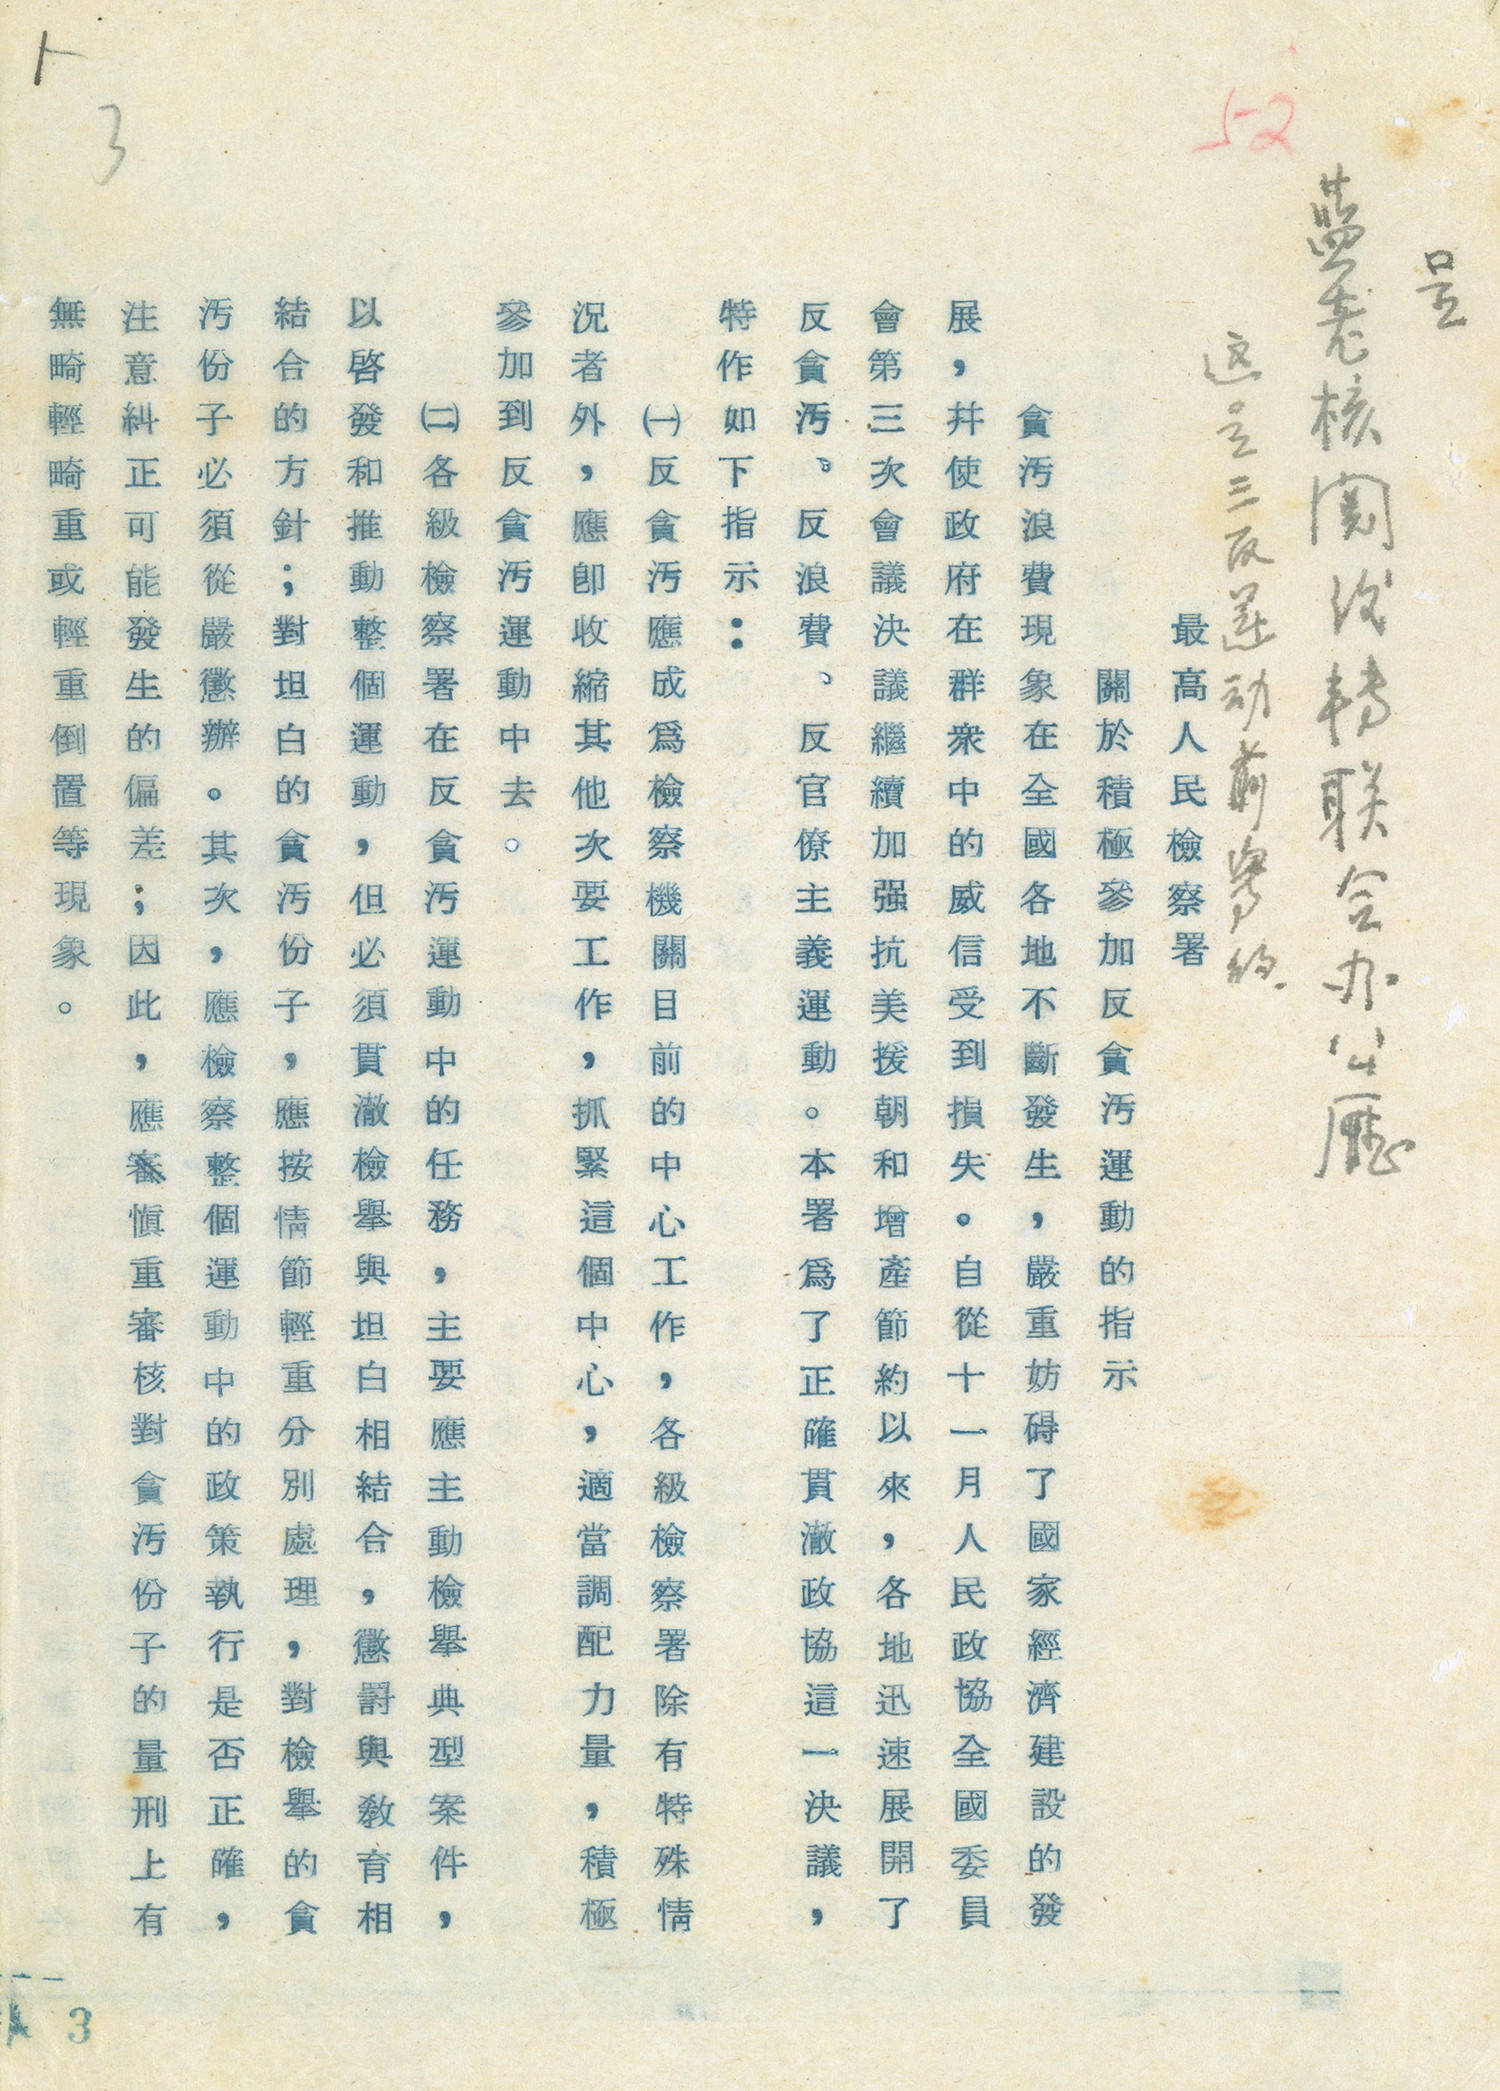 呈
蓝老核阅后转联合办公厅
这是三反运动前写的.
52
最高人民檢察署
關於積極參加反貪汚運動的指示
貪汚浪費現象在全國各地不斷發生，嚴重妨碍了國家經濟建設的發
展，幷使政府在群衆中的威信受到損失。自從十一月人民政協全國委員
會第三次會議決議繼續加强抗美援朝和增產節約以來，各地迅速展開了
反貪汚、反浪費、反官僚主義運動。本署爲了正確貫澈政協這一決議，
特作如下指示：
㈠反貪汚應成爲檢察機關目前的中心工作，各級檢察署除有特殊情
況者外，應卽收縮其他次要工作，抓緊這個中心，適當調配力量，積極
參加到反貪汚運動中去。
㈡各級檢察署在反貪汚運動中的任務，主要應主動檢舉典型案件，
以啓發和推動整個運動，但必須貫澈檢舉與坦白相結合，懲罸與教育相
結合的方針；對坦白的貪汚份子，應按情節輕重分別處理，對檢舉的貪
汚份子必須從嚴懲辦。其次，應檢察整個運動中的政策執行是否正確，
注意糾正可能發生的偏差；因此，應審愼重審核對貪汚份子的量刑上有
無畸輕畸重或輕重倒置等現象。
3
3